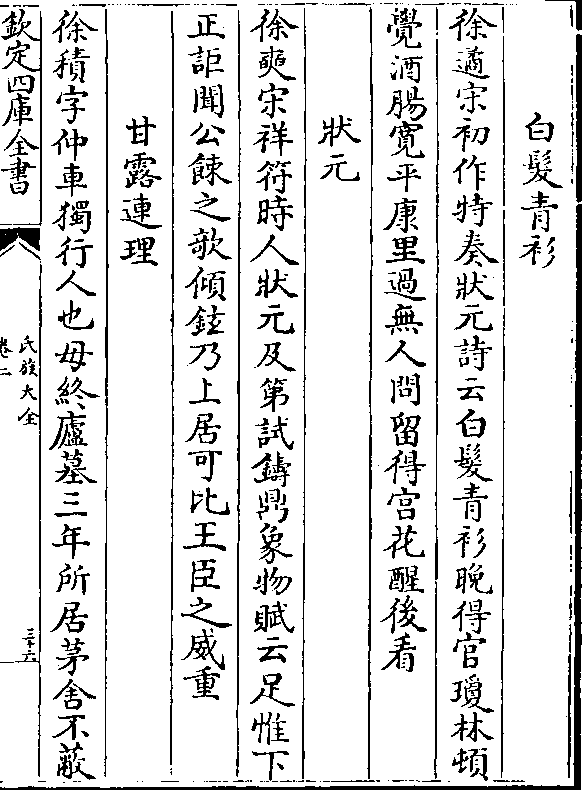 白髮青衫
徐遹宋初作特奏狀元詩云白髮青衫晚得官瓊林頓
覺酒腸寛平康里過無人問留得宫花醒後看
狀元
徐奭宋祥符時人狀元及第試鑄鼎象物賦云足惟下
正詎聞公餗之欹傾鉉乃上居可比王臣之威重
甘露連理
徐積字仲車獨行人也母終廬墓三年所居茅舍不蔽
欽定四庫全書
氏族大全
卷二
三十六